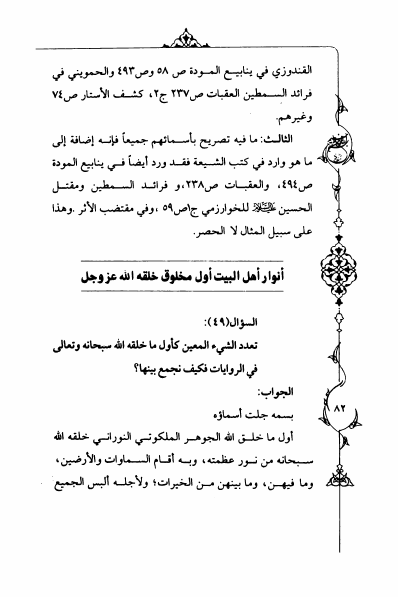 القندوزي في ينابيع المودة ص ٥٨ وص٤٩٣ والحمويني في
فرائد السمطين العقبات ص٢٣٧ ج٢، كشف الأستار ص٧٤
وغيرهم.
الثالث: ما فيه تصريح بأسمائهم جميعاً فإنه إضافة إلى
ما هو وارد في كتب الشيعة فقد ورد أيضاً في ينابيع المودة
ص٤٩٤، والعقبات ص٢٣٨،و فرائد السمطين ومقتل
الحسين للخوارزمي ج١ص٥٩ ،وفي مقتضب الأثر .وهذا
على سبيل المثال لا الحصر.
أنوار أهل البيت أول مخلوق خلقه الله عز وجل
السؤال(٤٩):
تعدد الشيء المعين كأول ما خلقه الله سبحانه وتعالى
في الروايات فكيف نجمع بينها؟
الجواب:
بسمه جلت أسماؤه
أول ما خلق الله الجوهر الملكوتي النوراني خلقه الله
سبحانه من نور عظمته، وبه أقام السماوات والأرضين،
وما فيهن، وما بينهن من الخيرات؛ ولأجله ألبس الجميع
٨٢